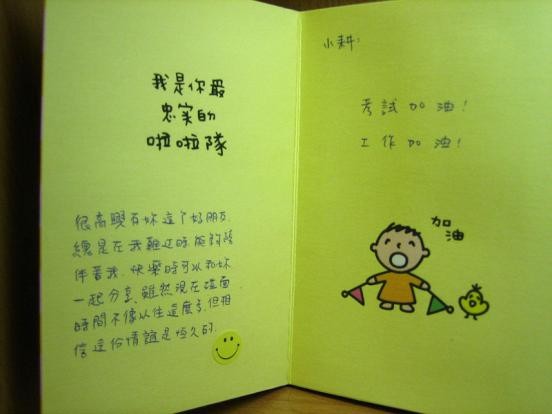 我是你最
忠実的
啦啦隊
很高興有妳這个好朋友,
總是在我難过時能夠陪
伴著我,快樂時可以和妳
一起分享,雖然現在碰面
時間不像以往這麼多,但相
信這份情誼是恆久的.
小耕:
考試加油!
工作加油!
加
油